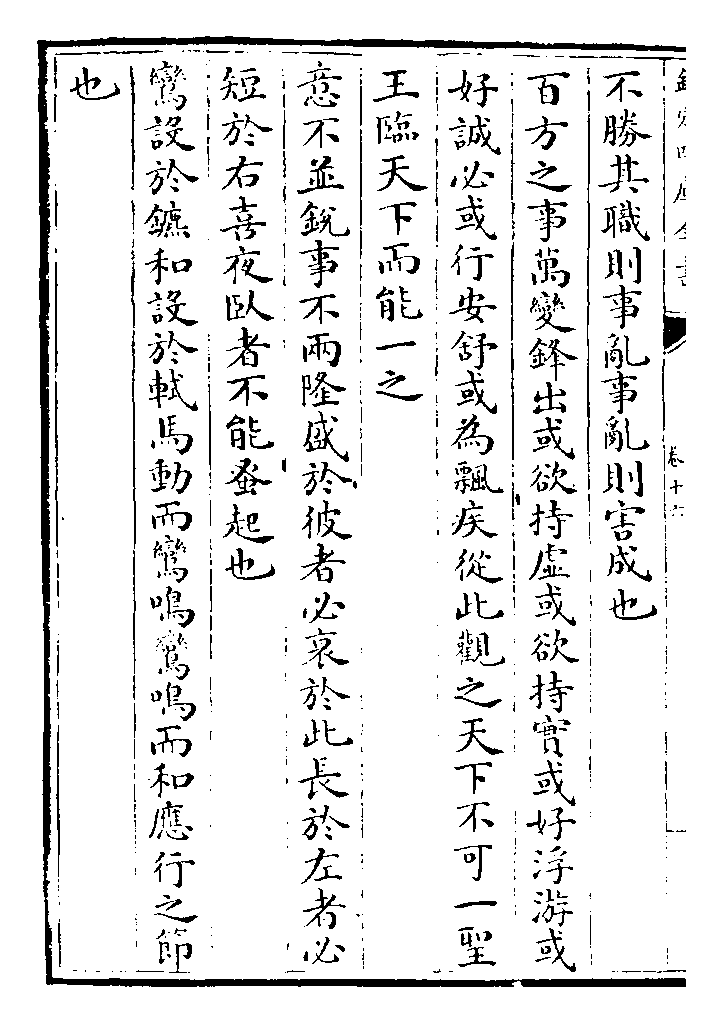 欽定四庫全書
卷十六
不勝其職則事亂事亂則害成也
百方之事萬變鋒出或欲持虛或欲持實或好浮游或
好誠必或行安舒或為飄疾從此觀之天下不可一聖
王臨天下而能一之
意不並銳事不兩隆盛於彼者必衰於此長於左者必
短於右喜夜臥者不能蚤起也
鸞設於鑣和設於軾馬動而鸞鳴鸞鳴而和應行之節
也